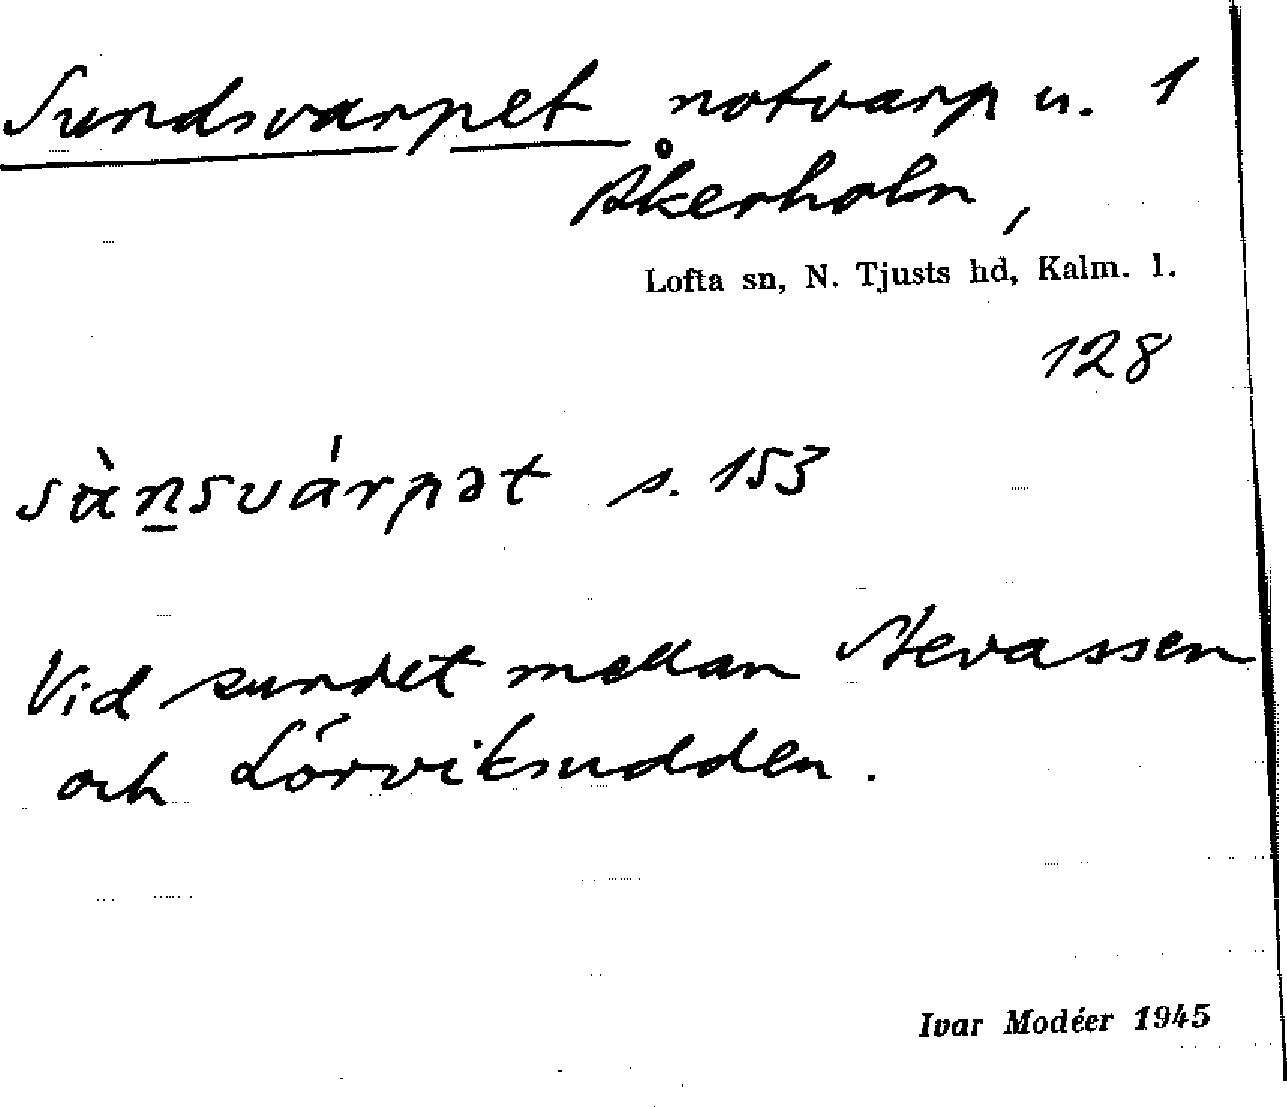 Sundsvarpet notvarp u. 1
Åkerholm,
Lofta sn, N. Tjusts hd, Kalm. l.
128
sàn̲svárpət s. 153
Vid sundet mellan Stevassen
och Lörviksudden.
Ivar Modéer 1945